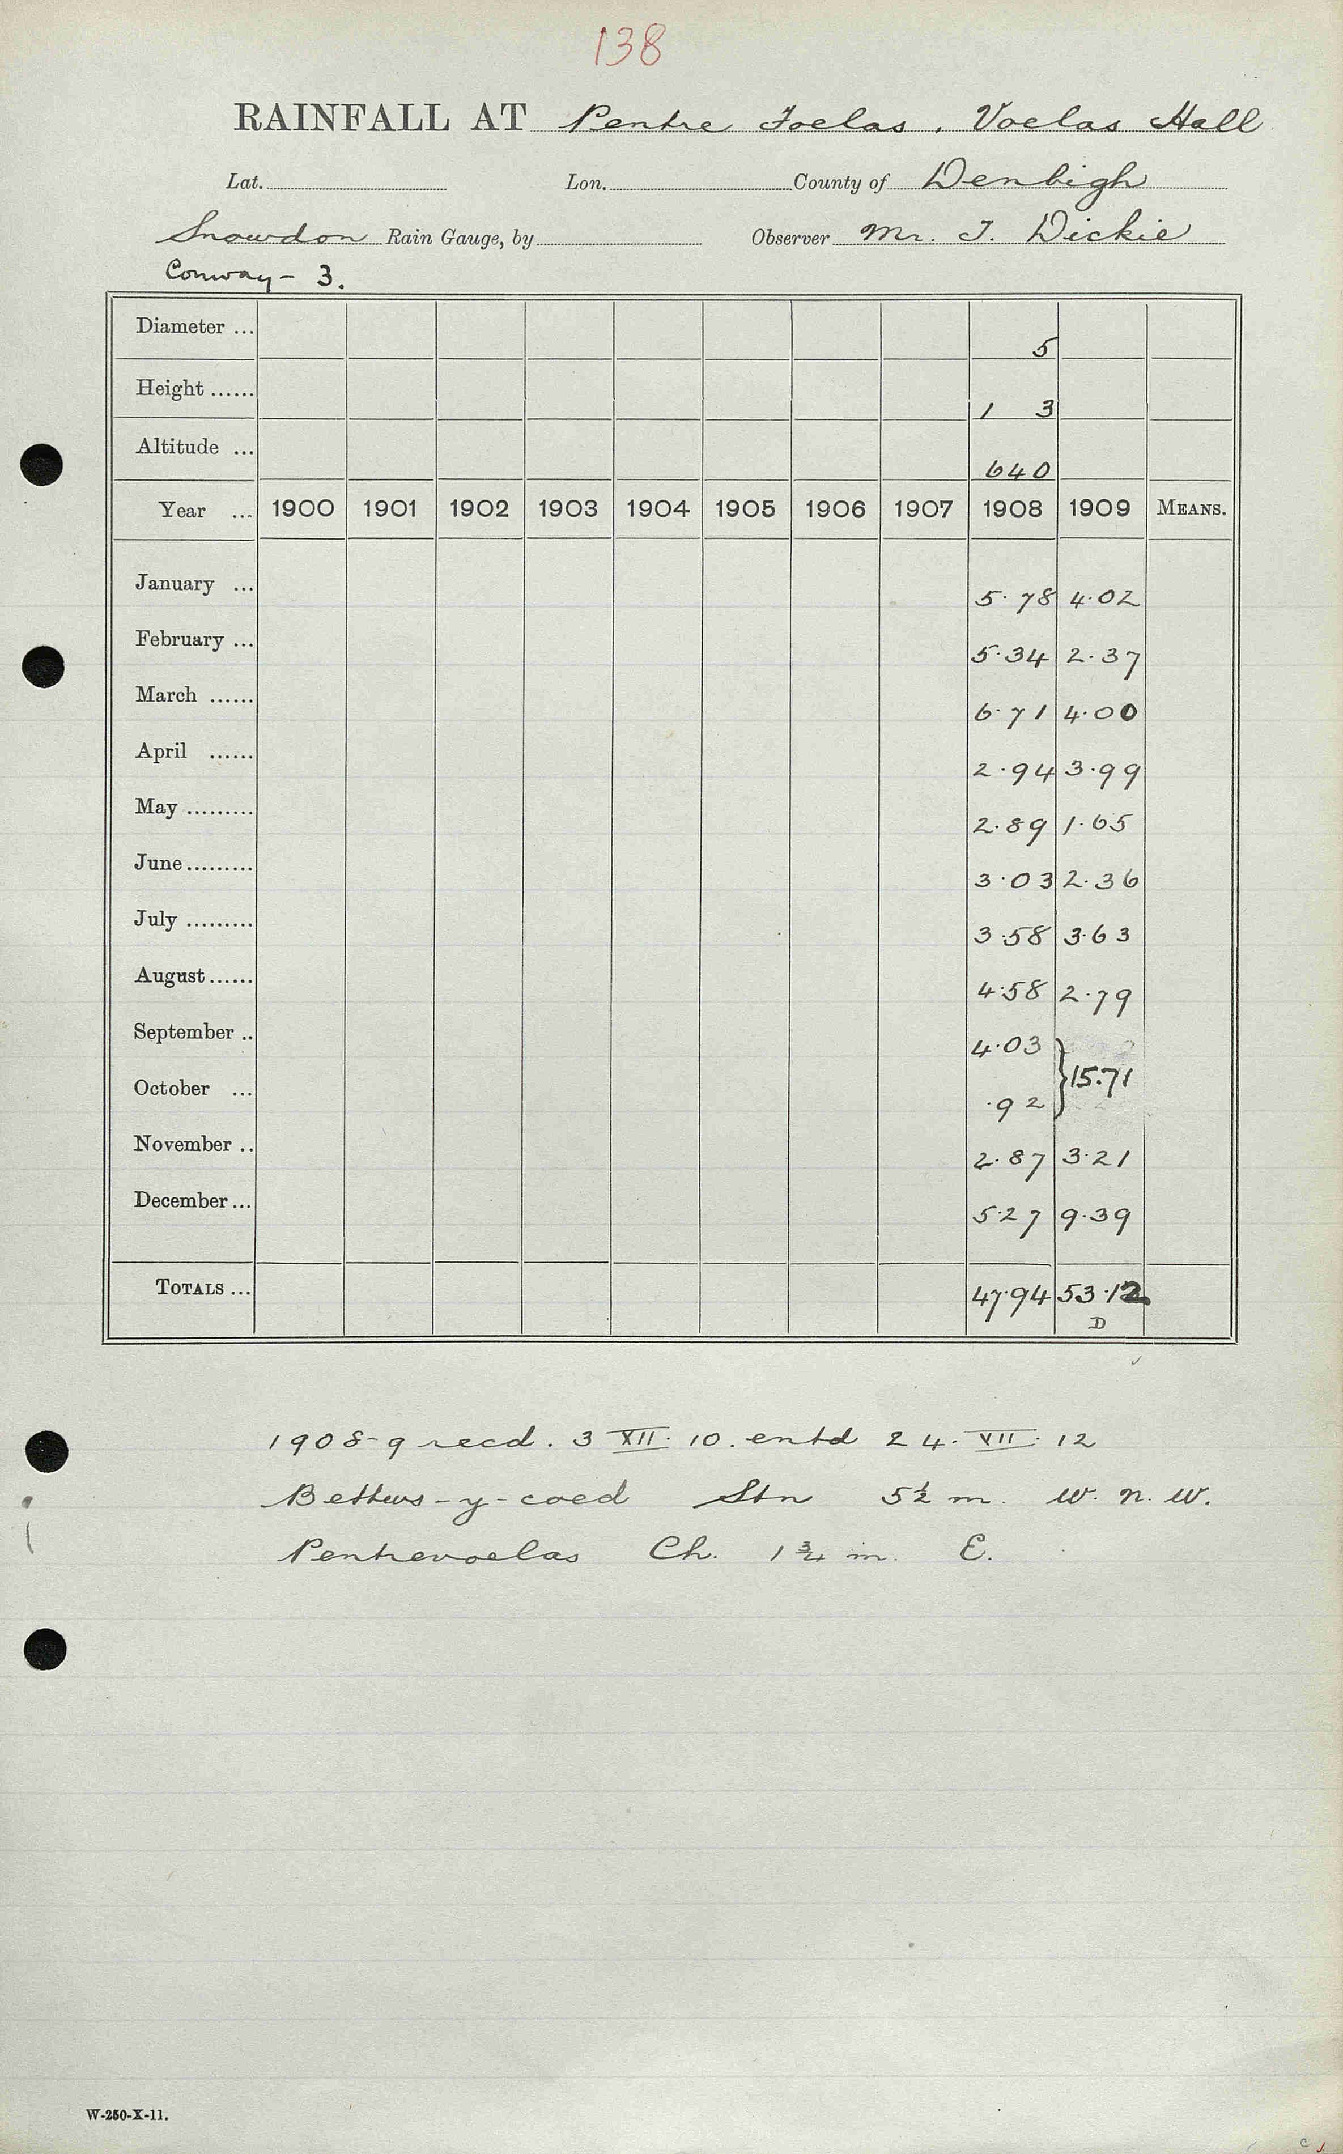 138
RAINFALL AT Pentre Foelas. Voelas Hall
Lat. Lon. County of Denbigh
Snowdon Rain Gauge, by Observer Mr. J. Dickie
Conway - 3.
Diameter ... 5
Height ...... 1 3
Altitude ... 640
Year ... 1900 1901 1902 1903 1904 1905 1906 1907 1908 1909 MEANS.
January ... 5.78 4.02
February ... 5.34 2.37
March ...... 6.71 4.00
April ...... 2.94 3.99
May ......... 2.89 1.65
June ......... 3.03 2.36
July ......... 3.58 3.63
August ...... 4.58 2.79
September .. 4.03
} 15.71
October ... .92
November .. 2.87 3.21
December ... 5.27 9.39
TOTALS ... 47.94 53.12
D
1908-9 recd. 3 XII. 10. entd 24. VII. 12
Bettws-y-coed Stn 5½ m. W. N. W.
Pentrevoelas Ch. 1¾ m. E.
W-250-X-11.